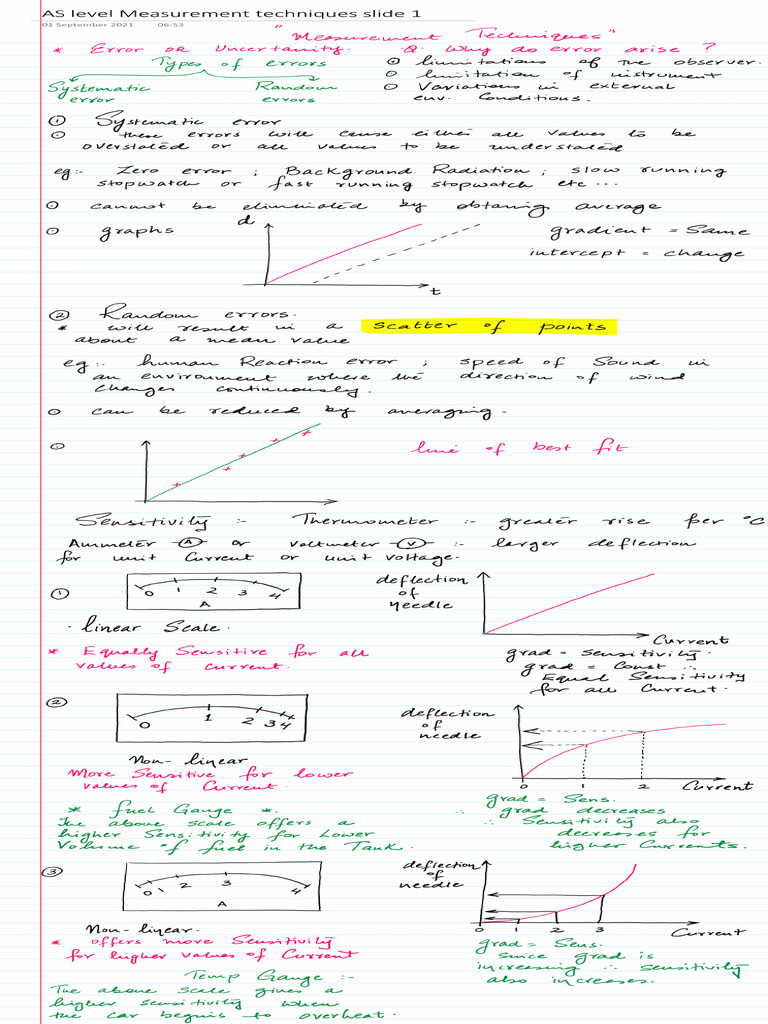 AS level Measurement techniques slide 1
01 September 2021 06:53
"Measurement Techniques"
* Error or Uncertainty. Q. Why do error arise ?
Types of errors
limitations of the observer.
limitation of instrument
Systematic error
Random errors
Variations in external env. Conditions.
① Systematic error
these errors will cause either all values to be
overstated or all values to be understated
eg:- Zero error ; Background Radiation ; slow running
stopwatch or fast running stopwatch etc ...
cannot be eliminated by obtaning average
graphs
d
t
gradient = Same
intercept = change
② Random errors.
* will result in a scatter of points
about a mean value
eg:. human Reaction error ; speed of Sound in
an environment where the direction of wind
changes continuously.
can be reduced by averaging.
line of best fit
Sensitivity :- Thermometer :- greater rise per °C
Ammeter A or voltmeter V :- larger deflection
for unit Current or unit voltage.
①
0 1 2 3 4
A
deflection of needle
Current
. linear Scale.
* Equally Sensitive for all
values of current.
grad = sensitivity.
grad = Const ∴
Equal Sensitivity
for all Current.
②
0 1 2 3 4
deflection of needle
0 1 2 Current
Non-linear
More Sensitive for lower
values of Current.
grad = Sens.
∴ grad decreases
∴ Sensitivity also
decreases for
higher Currents.
* fuel Gauge *.
The above scale offers a
higher Sensitivity for Lower
Volume of fuel in the Tank.
③
0 1 2 3 4
A
deflection of needle
0 1 2 3
Current
Non-linear.
* offers more Sensitivity
for higher values of Current
grad = Sens.
since grad is
increasing ∴ sensitivity
also increases.
Temp Gauge :-
The above scale gives a
higher sensitivity when
the car begins to overheat.